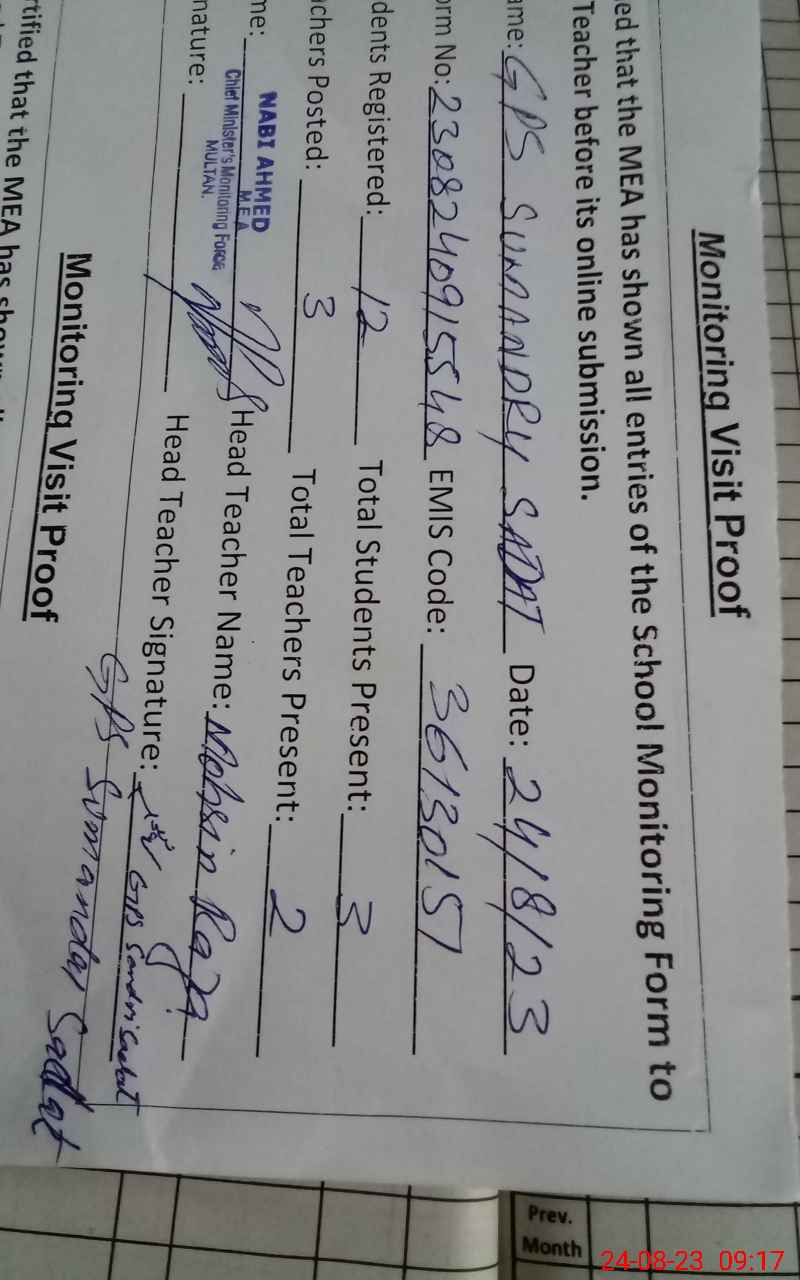 Monitoring Visit Proof
ed that the MEA has shown all entries of the School Monitoring Form to
Teacher before its online submission.
ame: GPS SUMANDRY SADAT Date: 24/8/23
orm No: 2308240915548 EMIS Code: 36130151
dents Registered: 12 Total Students Present: 3
chers Posted: 3 Total Teachers Present: 2
me: NABI AHMED Head Teacher Name: Mohsin Raza
M.E.A
Chief Minister's Monitoring Force
MULTAN.
nature: Head Teacher Signature:
GPS Sumandar Sadat
Monitoring Visit Proof
rtified that the MEA has shown
Prev.
Month
24-08-23 09:17